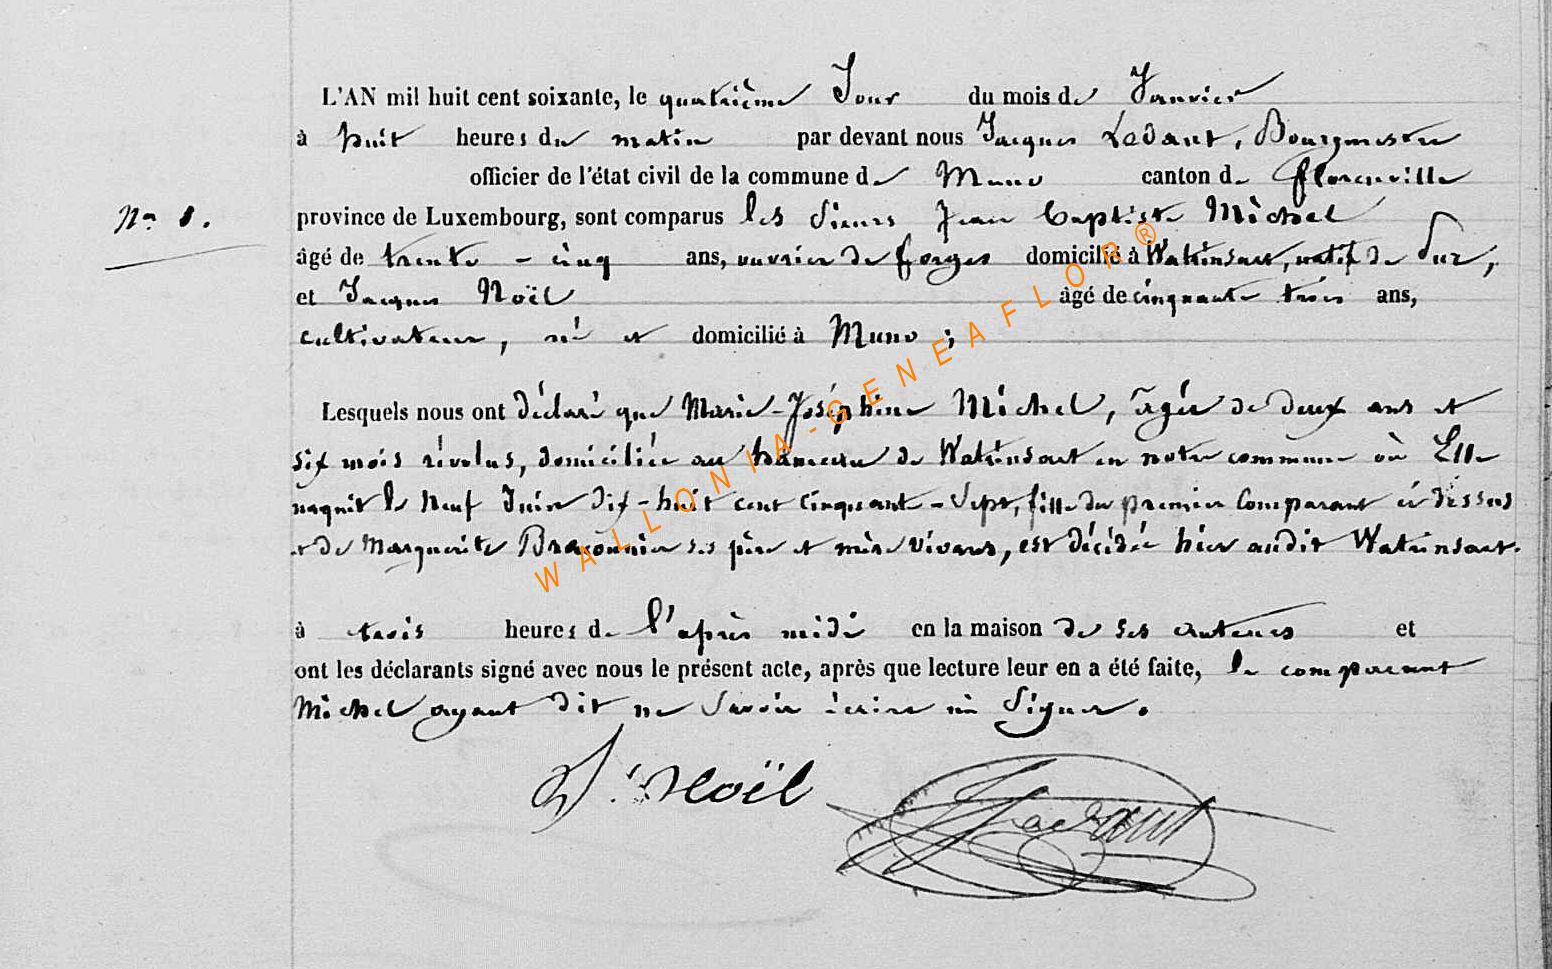 L'AN mil huit cent soixante, le quatrième Jour du mois de Janvier
à huit heures du matin par devant nous Jacques Ledant, Bourgmestre
officier de l'état civil de la commune de Muno canton de florenville
province de Luxembourg, sont comparus les Sieurs Jean Baptiste Michel
N° 1.
âgé de trente-cinq ans, ouvrier de forges domicilié à Watrinsart, natif de Suz,
et Jacques Noël âgé de cinquante trois ans,
cultivateur, né et domicilié à Muno ;
Lesquels nous ont déclaré que Marie-Joséphine Michel, âgée de deux ans et
six mois révolus, domiciliée au hameau de Watrinsart en notre commune où Elle
naquit le Neuf Juin dix-huit cent cinquante-Sept, fille du premier Comparant ci dessus
et de Marguerite ses père et mère vivans, est décédée hier audit Watrinsart.
à trois heures de l'après midi en la maison de ses auteurs et
ont les déclarants signé avec nous le présent acte, après que lecture leur en a été faite, le comparant
Michel ayant dit ne Savoir écrire ni Signer.
Noël
JLedant
WALLONIA-GENEAFLOR®